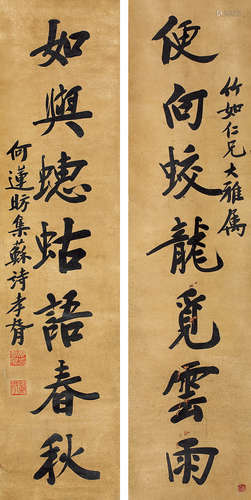 竹如仁兄大雅属
便向蛟龍覓雲雨
如與蟪蛄語春秋
何蓮昉集蘇詩李膺